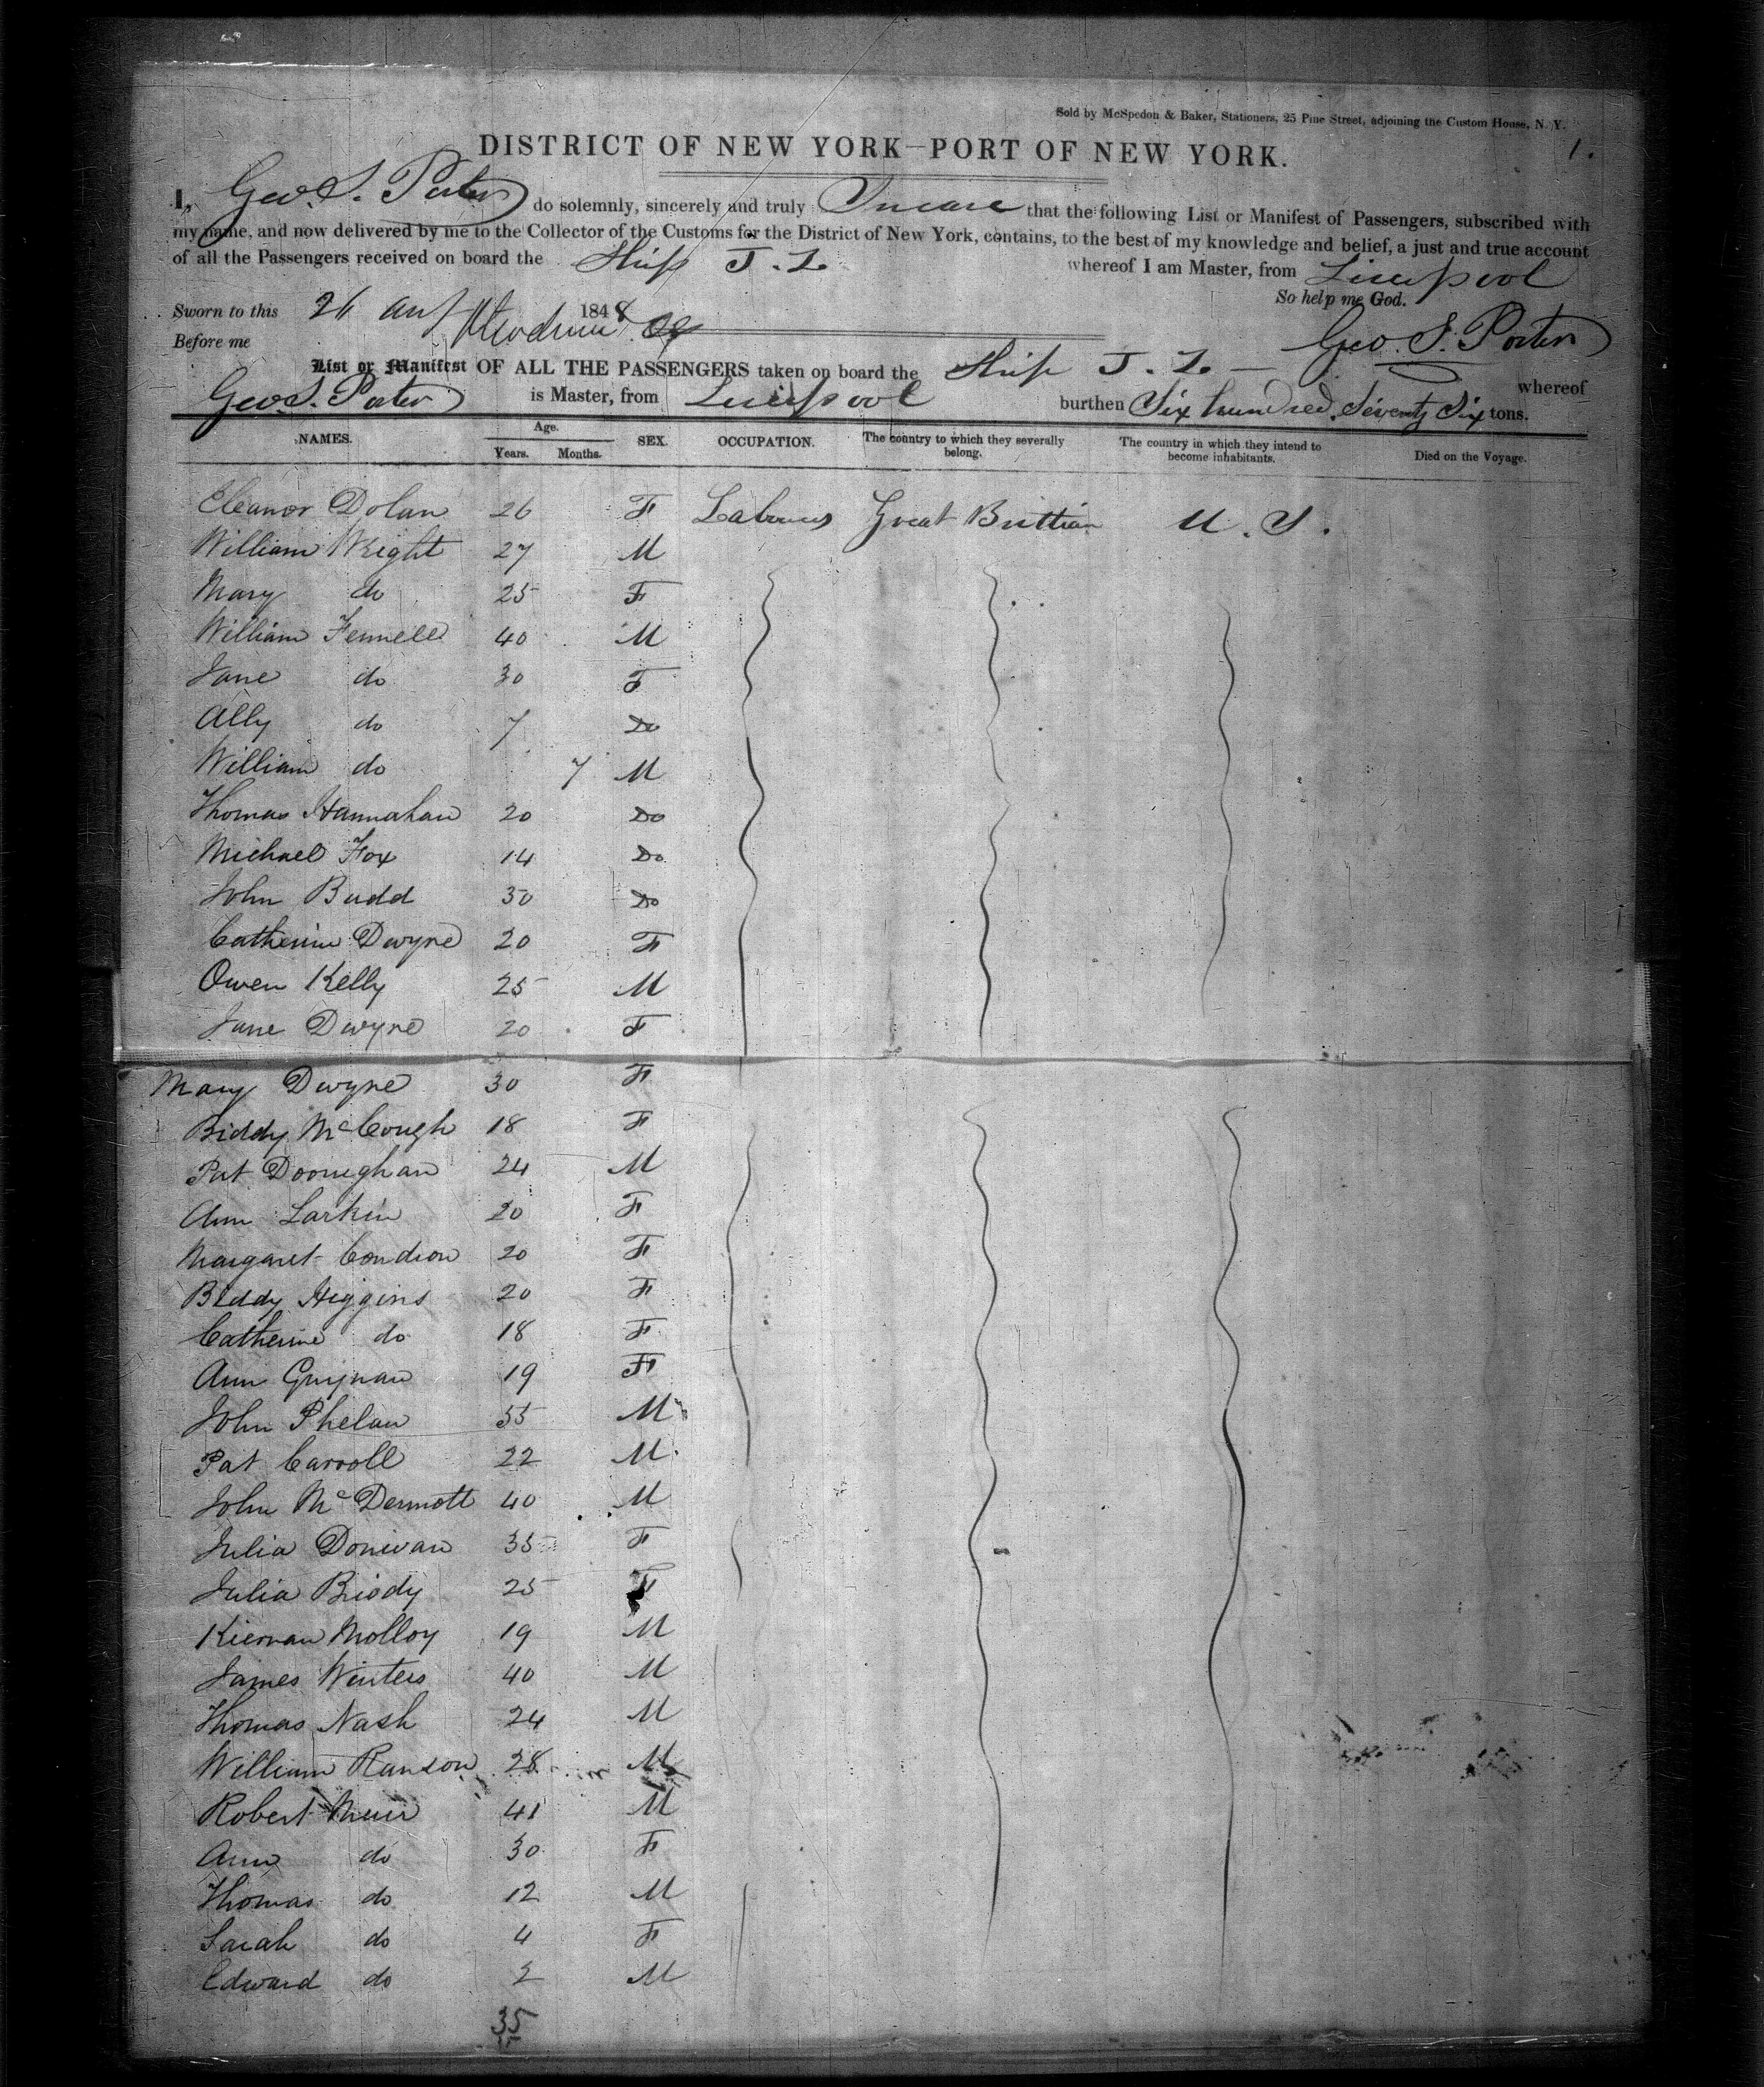 Sold by McSpedon & Baker, Stationers, 25 Pine Street, adjoining the Custom House, N. Y.
1.
DISTRICT OF NEW YORK—PORT OF NEW YORK.
I, Geo. S. Porter do solemnly, sincerely and truly Swear that the following List or Manifest of Passengers, subscribed with
my name, and now delivered by me to the Collector of the Customs for the District of New York, contains, to the best of my knowledge and belief, a just and true account
of all the Passengers received on board the Ship J. Z. whereof I am Master, from Liverpool
So help me God.
Sworn to this 26 1848
Before me
Geo. S. Porter
List or Manifest OF ALL THE PASSENGERS taken on board the Ship J. Z. — whereof
Geo. S. Porter is Master, from Liverpool burthen Six hundred Seventy Six tons.
NAMES. Age. Years. Months. SEX. OCCUPATION. The country to which they severally belong. The country in which they intend to become inhabitants. Died on the Voyage.
Eleanor Dolan 26 F Labourers Great Brittian U. S.
William Wright 27 M
Mary do 25 F
William Fennell 40 M
Jane do 30 F
Ally do 7 Do
William do 7 M
Thomas Hannahan 20 Do
Michael Fox 14 Do
John Budd 30 Do
Catherine Dwyre 20 F
Owen Kelly 25 M
Jane Dwyre 20 F
Mary Dwyre 30 F
Biddy McCough 18 F
Pat Dooneghan 24 M
Ann Larkin 20 F
Margaret Condron 20 F
Biddy Higgins 20 F
Catherine do 18 F
Ann Guynan 19 F
John Phelan 35 M
Pat Carroll 22 M
John McDermott 40 M
Julia Donivan 35 F
Julia Briody 25 F
Kiernan Molloy 19 M
James Winters 40 M
Thomas Nash 24 M
William Ranson 28 M
Robert Muir 41 M
Ann do 30 F
Thomas do 12 M
Sarah do 4 F
Edward do 2 M
35